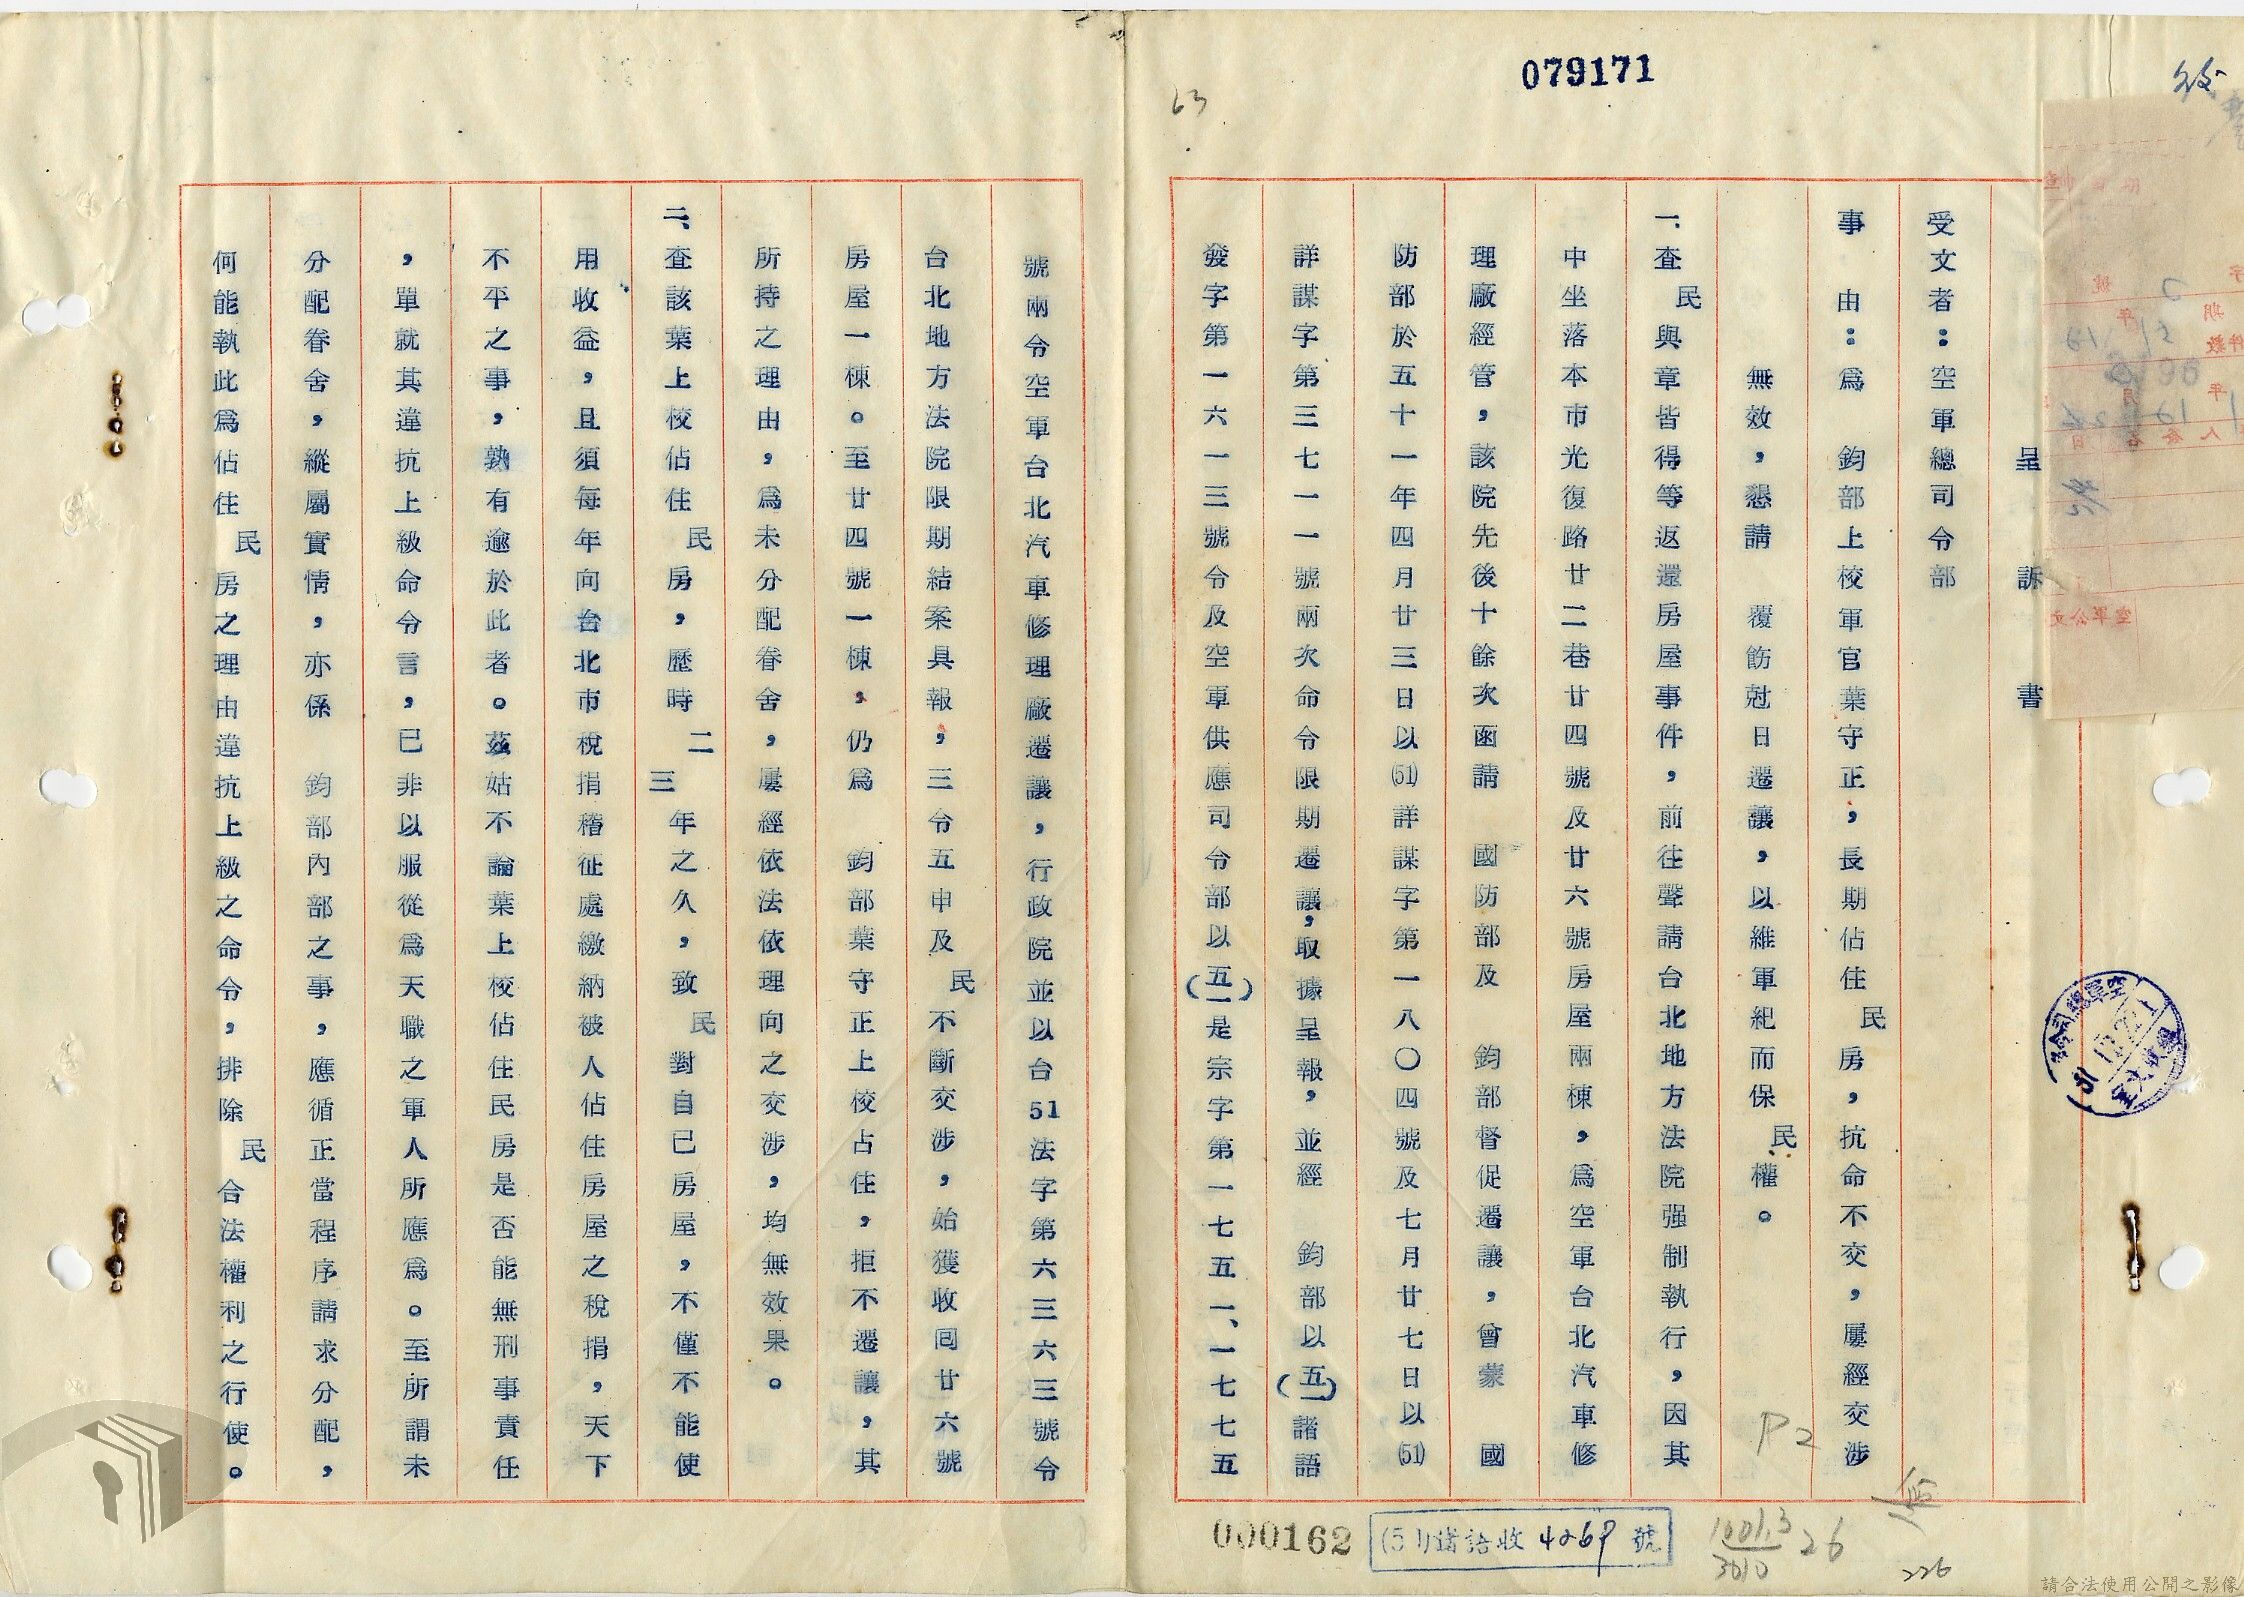 079171
63
呈訴書
受文者：空軍總司令部
事由：爲　鈞部上校軍官葉守正，長期佔住民房，抗命不交，屢經交涉
無效，懇請　覆飭尅日遷讓，以維軍紀而保民權。
一、查民與章皆得等返還房屋事件，前往聲請台北地方法院强制執行，因其
中坐落本市光復路廿二巷廿四號及廿六號房屋兩棟，爲空軍台北汽車修
理廠經管，該院先後十餘次函請　國防部及　鈞部督促遷讓，曾蒙　國
防部於五十一年四月廿三日以(51)詳謀字第一八〇四號及七月廿七日以(51)
詳謀字第三七一一號兩次命令限期遷讓，取據呈報，並經　鈞部以(五一)諸語
發字第一六一三號令及空軍供應司令部以(五一)是宗字第一七五一、一七七五
號兩令空軍台北汽車修理廠遷讓，行政院並以台51法字第六三六三號令
台北地方法院限期結案具報，三令五申及民不斷交涉，始獲收回廿六號
房屋一棟。至廿四號一棟，仍爲　鈞部葉守正上校占住，拒不遷讓，其
所持之理由，爲未分配眷舍，屢經依法依理向之交涉，均無效果。
二、查該葉上校佔住民房，歷時二三年之久，致民對自己房屋，不僅不能使
用收益，且須每年向台北市稅捐稽征處繳納被人佔住房屋之稅捐，天下
不平之事，孰有逾於此者。茲姑不論葉上校佔住民房是否能無刑事責任
，單就其違抗上級命令言，已非以服從爲天職之軍人所應爲。至所謂未
分配眷舍，縱屬實情，亦係　鈞部內部之事，應循正當程序請求分配，
何能執此爲佔住民房之理由違抗上級之命令，排除民合法權利之行使。
P2
000162
(51)諸語收4269號
1001.3
3010
26
226
空軍公文
請合法使用公開之影像